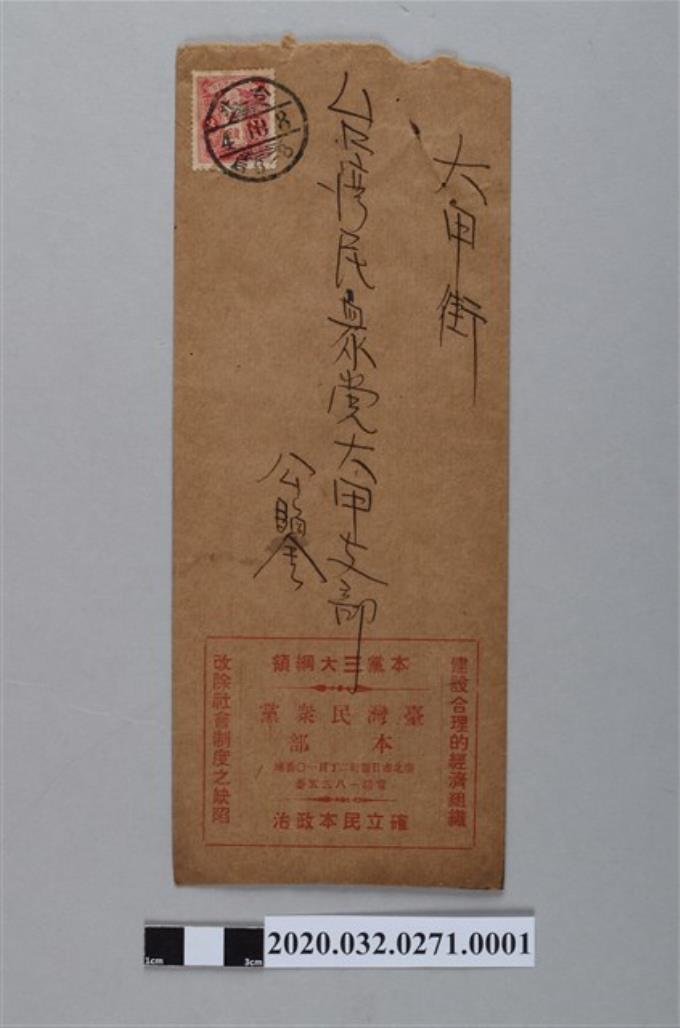 大甲街
台湾民衆党大甲支部
公鑒
本黨三大綱領
建設合理的經濟組織
臺灣民衆黨
本部
臺北市日新町二丁目一〇番地
電話一八三五番
確立民本政治
改除社會制度之缺陷
1cm
3cm
2020.032.0271.0001